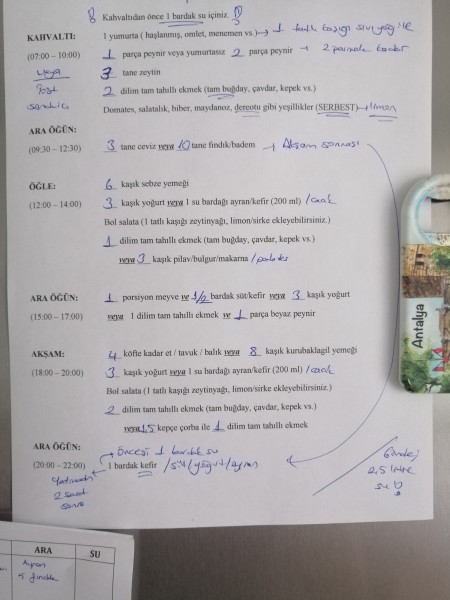 Kahvaltıdan önce 1 bardak su içiniz.
KAHVALTI: 1 yumurta ( haşlanmış, omlet, menemen vs.) → 1 tatlı kaşığı sıvı yağ ile
(07:00 – 10:00) 1 parça peynir veya yumurtasız 2 parça peynir → 2 parmak kadar
veya 7 tane zeytin
Tost 2 dilim tam tahıllı ekmek (tam buğday, çavdar, kepek vs.)
Domates, salatalık, biber, maydanoz, dereotu gibi yeşillikler (SERBEST) → limon
ARA ÖĞÜN:
(09:30 – 12:30) 3 tane ceviz veya 10 tane fındık/badem → Akşam sonrası
ÖĞLE: 6 kaşık sebze yemeği
(12:00 – 14:00) 3 kaşık yoğurt veya 1 su bardağı ayran/kefir (200 ml) /cacık
Bol salata (1 tatlı kaşığı zeytinyağı, limon/sirke ekleyebilirsiniz.)
1 dilim tam tahıllı ekmek (tam buğday, çavdar, kepek vs.)
veya 3 kaşık pilav/bulgur/makarna /patates
ARA ÖĞÜN: 1 porsiyon meyve ve 1/2 bardak süt/kefir veya 3 kaşık yoğurt
(15:00 – 17:00) veya 1 dilim tam tahıllı ekmek ve 1 parça beyaz peynir
AKŞAM: 4 köfte kadar et / tavuk / balık veya 8 kaşık kurubaklagil yemeği
(18:00 – 20:00) 3 kaşık yoğurt veya 1 su bardağı ayran/kefir (200 ml) /cacık
Bol salata (1 tatlı kaşığı zeytinyağı, limon/sirke ekleyebilirsiniz.)
2 dilim tam tahıllı ekmek (tam buğday, çavdar, kepek vs.)
veya 1,5 kepçe çorba ile 1 dilim tam tahıllı ekmek
ARA ÖĞÜN: öncesi 1 bardak su
(20:00 – 22:00) 1 bardak kefir /süt/yoğurt/ayran
Yatmadan
2 saat
önce
2,5 litre
su
Antalya
ARA SU
Ayran
5 fındık